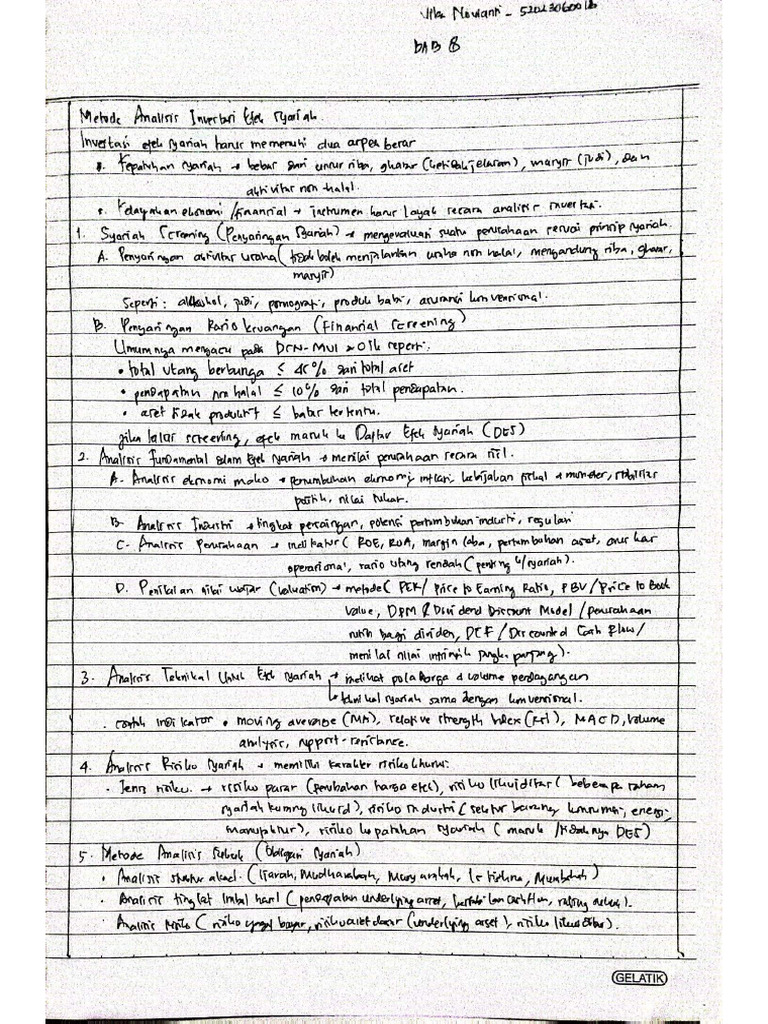 Novianti - 
BAB 8
Metode Analisis Investasi Efek Syariah.
Investasi efek syariah harus memenuhi dua aspek besar
Kepatuhan syariah → bebas dari unsur riba, gharar (ketidakjelasan), maysir (judi), dan
aktivitas non halal.
Kelayakan ekonomi / financial → instrumen harus layak secara analisis investasi.
1. Syariah Screening (Penyaringan Syariah) → mengevaluasi suatu perusahaan sesuai prinsip syariah.
A. Penyaringan aktivitas usaha (tidak boleh menjalankan usaha non halal, mengandung riba, gharar,
maysir)
Seperti : alkohol, judi, pornografi, produk babi, asuransi konvensional.
B. Penyaringan Rasio keuangan (Financial Screening)
Umumnya mengacu pada DSN-MUI seperti.
• total utang berbunga ≤ 45% dari total aset
• pendapatan non halal ≤ 10% dari total pendapatan.
• aset tidak produktif ≤ batas tertentu.
jika lolos screening, efek masuk ke Daftar Efek Syariah (DES)
2. Analisis Fundamental dalam Efek Syariah → menilai perusahaan secara riil.
A. Analisis ekonomi makro → pertumbuhan ekonomi, inflasi, kebijakan fiskal & moneter, stabilitas
politik, nilai tukar.
B. Analisis Industri → tingkat persaingan, potensi pertumbuhan industri, regulasi
C. Analisis Perusahaan → indikator ( ROE, ROA, margin laba, pertumbuhan aset, arus kas
operasional, rasio utang rendah (penting u/syariah).
D. Penilaian nilai wajar (valuation) → metode ( PER / Price to Earning Ratio, PBV / Price to Book
Value, DDM Dividend Discount Model / perusahaan
rutin bagi dividen, DCF / Discounted Cash Flow /
menilai nilai intrinsik jangka panjang).
3. Analisis Teknikal Untuk Efek Syariah → melihat pola harga & volume perdagangan
teknikal syariah sama dengan konvensional.
. contoh indikator • moving average (MA), relative strength index (RSI), MACD, volume
analysis, support - resistance.
4. Analisis Risiko Syariah → memiliki karakter risiko khusus:
• Jenis risiko. → risiko pasar (perubahan harga efek), risiko likuiditas ( beberapa saham
syariah kurang likuid), risiko industri ( sektor barang konsumsi, energi,
manufaktur), risiko kepatuhan syariah ( masuk / tidaknya DES)
5. Metode Analisis Sukuk (Obligasi Syariah)
• Analisis struktur akad. (Ijarah, Mudharabah, Musyarakah, Istishna, Murabahah)
• Analisis tingkat imbal hasil ( pendapatan underlying asset, kestabilan cashflow, rating sukuk).
• Analisis risiko ( risiko gagal bayar, risiko aset dasar (underlying asset), risiko likuiditas).
GELATIK